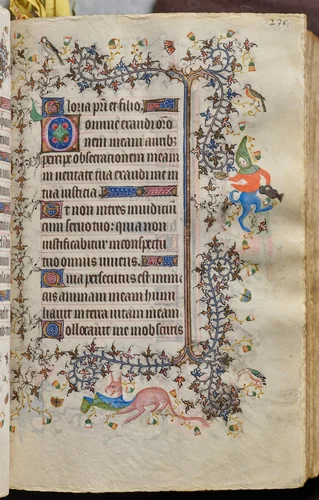 Gloria pri et filio.
Domine exaudi oro
nem meam auribz
percipe obsecrationem meam
in veritate tua exaudi me in
tua iusticia.
Et non intres in iudicium
cum seruo tuo: quia non
iustificabitur in conspectu
tuo omnis viuens.
Quia persecutus est inimi
cus animam meam humi
liauit in terra vitam meam
Collocauit me in obscuris